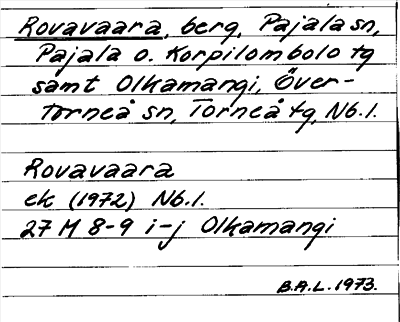 Rovavaara, berg, Pajala sn,
Pajala o. Korpilombolo tg
samt Olkamangi, Över-
Torneå sn, Torneå tg, Nb.l.
Rovavaara
ek (1972) Nb.l.
27 M 8-9 i-j Olkamangi
B.A.L. 1973.